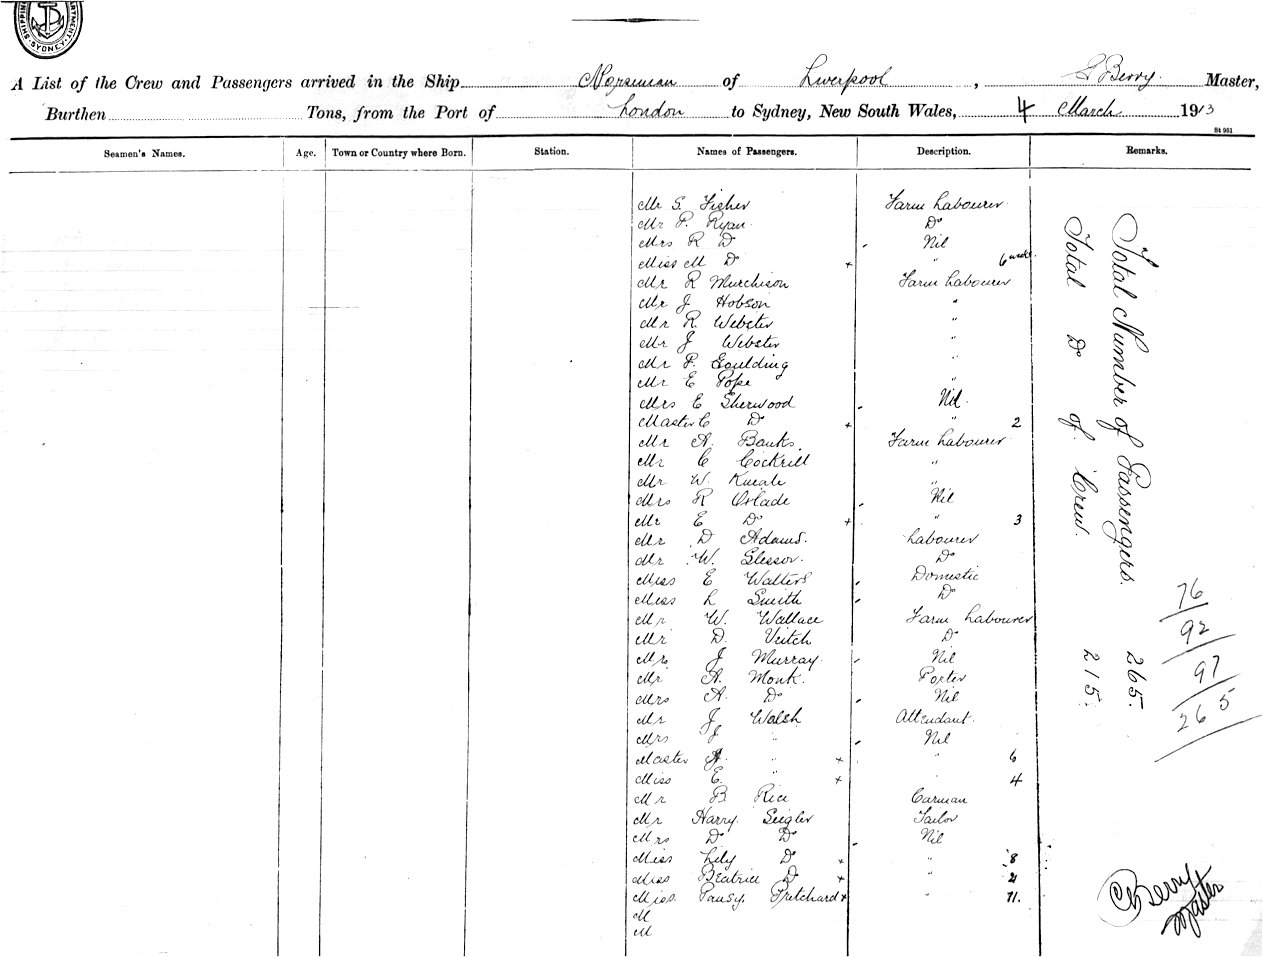 SHIPPING DEPARTMENT. SYDNEY.
A List of the Crew and Passengers arrived in the Ship Norseman of Liverpool, Berry Master,
Burthen Tons, from the Port of London to Sydney, New South Wales, 4 March 1913
St 951
Seamen's Names. Age. Town or Country where Born. Station. Names of Passengers. Description. Remarks.
Mr S. Fisher Farm Labourer
Mr P. Ryan Do
Mrs R Do Nil
Miss M Do + " 6 weeks
Mr R Murchison Farm Labourer
Mr J Hobson "
Mr R. Webster "
Mr J Webster "
Mr P. Goulding "
Mr E Pope "
Mrs E Sherwood Nil
Master C Do + " 2
Mr A. Banks Farm Labourer
Mr C Cockrill "
Mr W. Kneale "
Mrs R Nil
Mr E Do + " 3
Mr D Adams. Labourer
Mr W. Slessor. Do
Miss E Walters Domestic
Miss L Smith Do
Mr W. Wallace Farm Labourer
Mr D. Veitch Do
Mrs J Murray. Nil
Mr A. Monk. Porter
Mrs A Do Nil
Mr J Walsh Attendant.
Mrs J " Nil
Master A. " + " 6
Miss E. " + 4
Mr B Rice Carman
Mr Harry Seigler Tailor
Mrs D Do Nil
Miss Lily Do + " 8
Miss Beatrice Do + " 2
Miss Pansy. Pritchard + " 11.
M
M
Total Number of Passengers. 265.
Total Do of Crew. 215.
76
92
97
265
Berry
Master